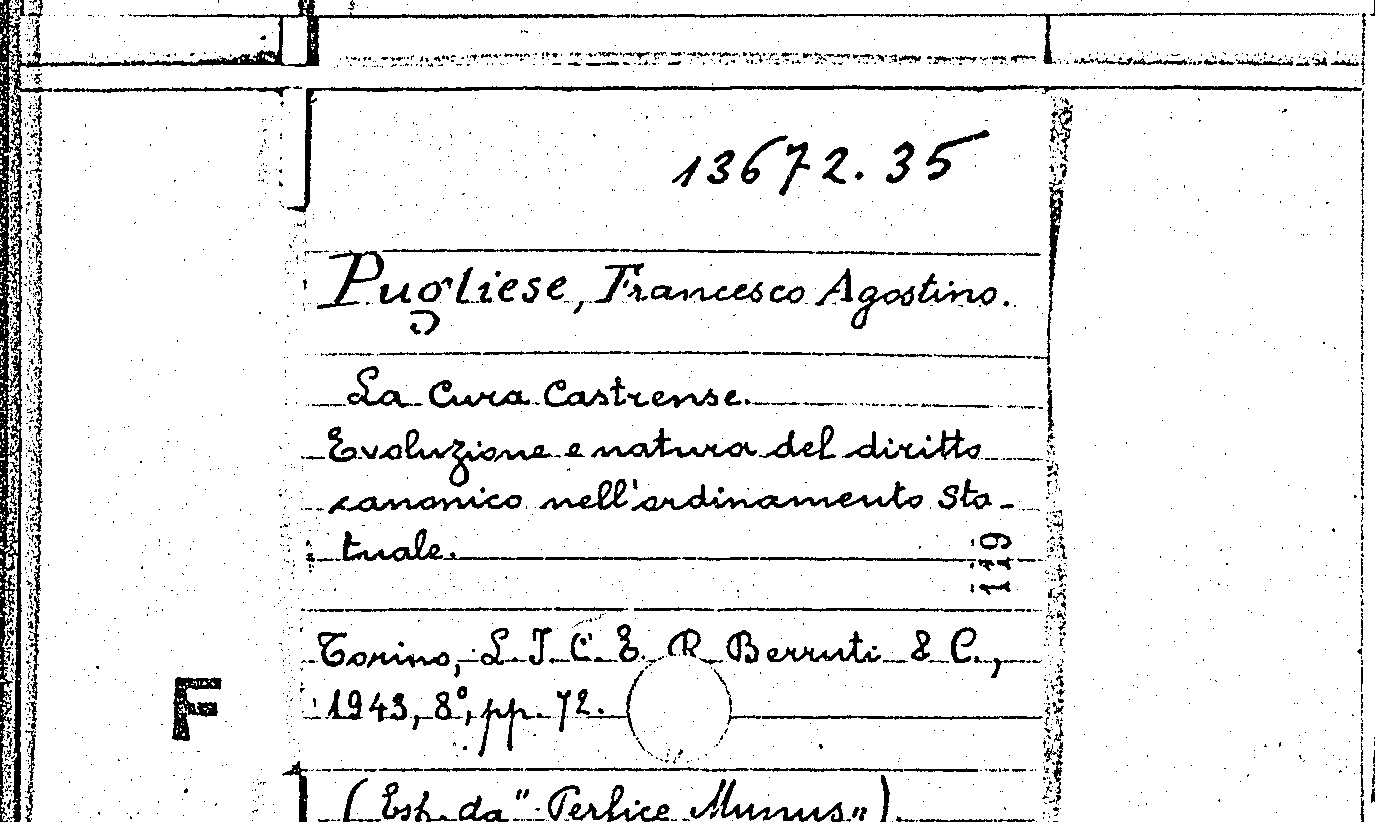 13672.35
Pugliese, Francesco Agostino.
La Cura Castrense.
Evoluzione e natura del diritto
canonico nell'ordinamento sta-
tuale.
119
Torino, L.I.C.E. R. Berruti & C.,
1943, 8°, pp. 72.
F
(Esf. da "Perfice Munus").